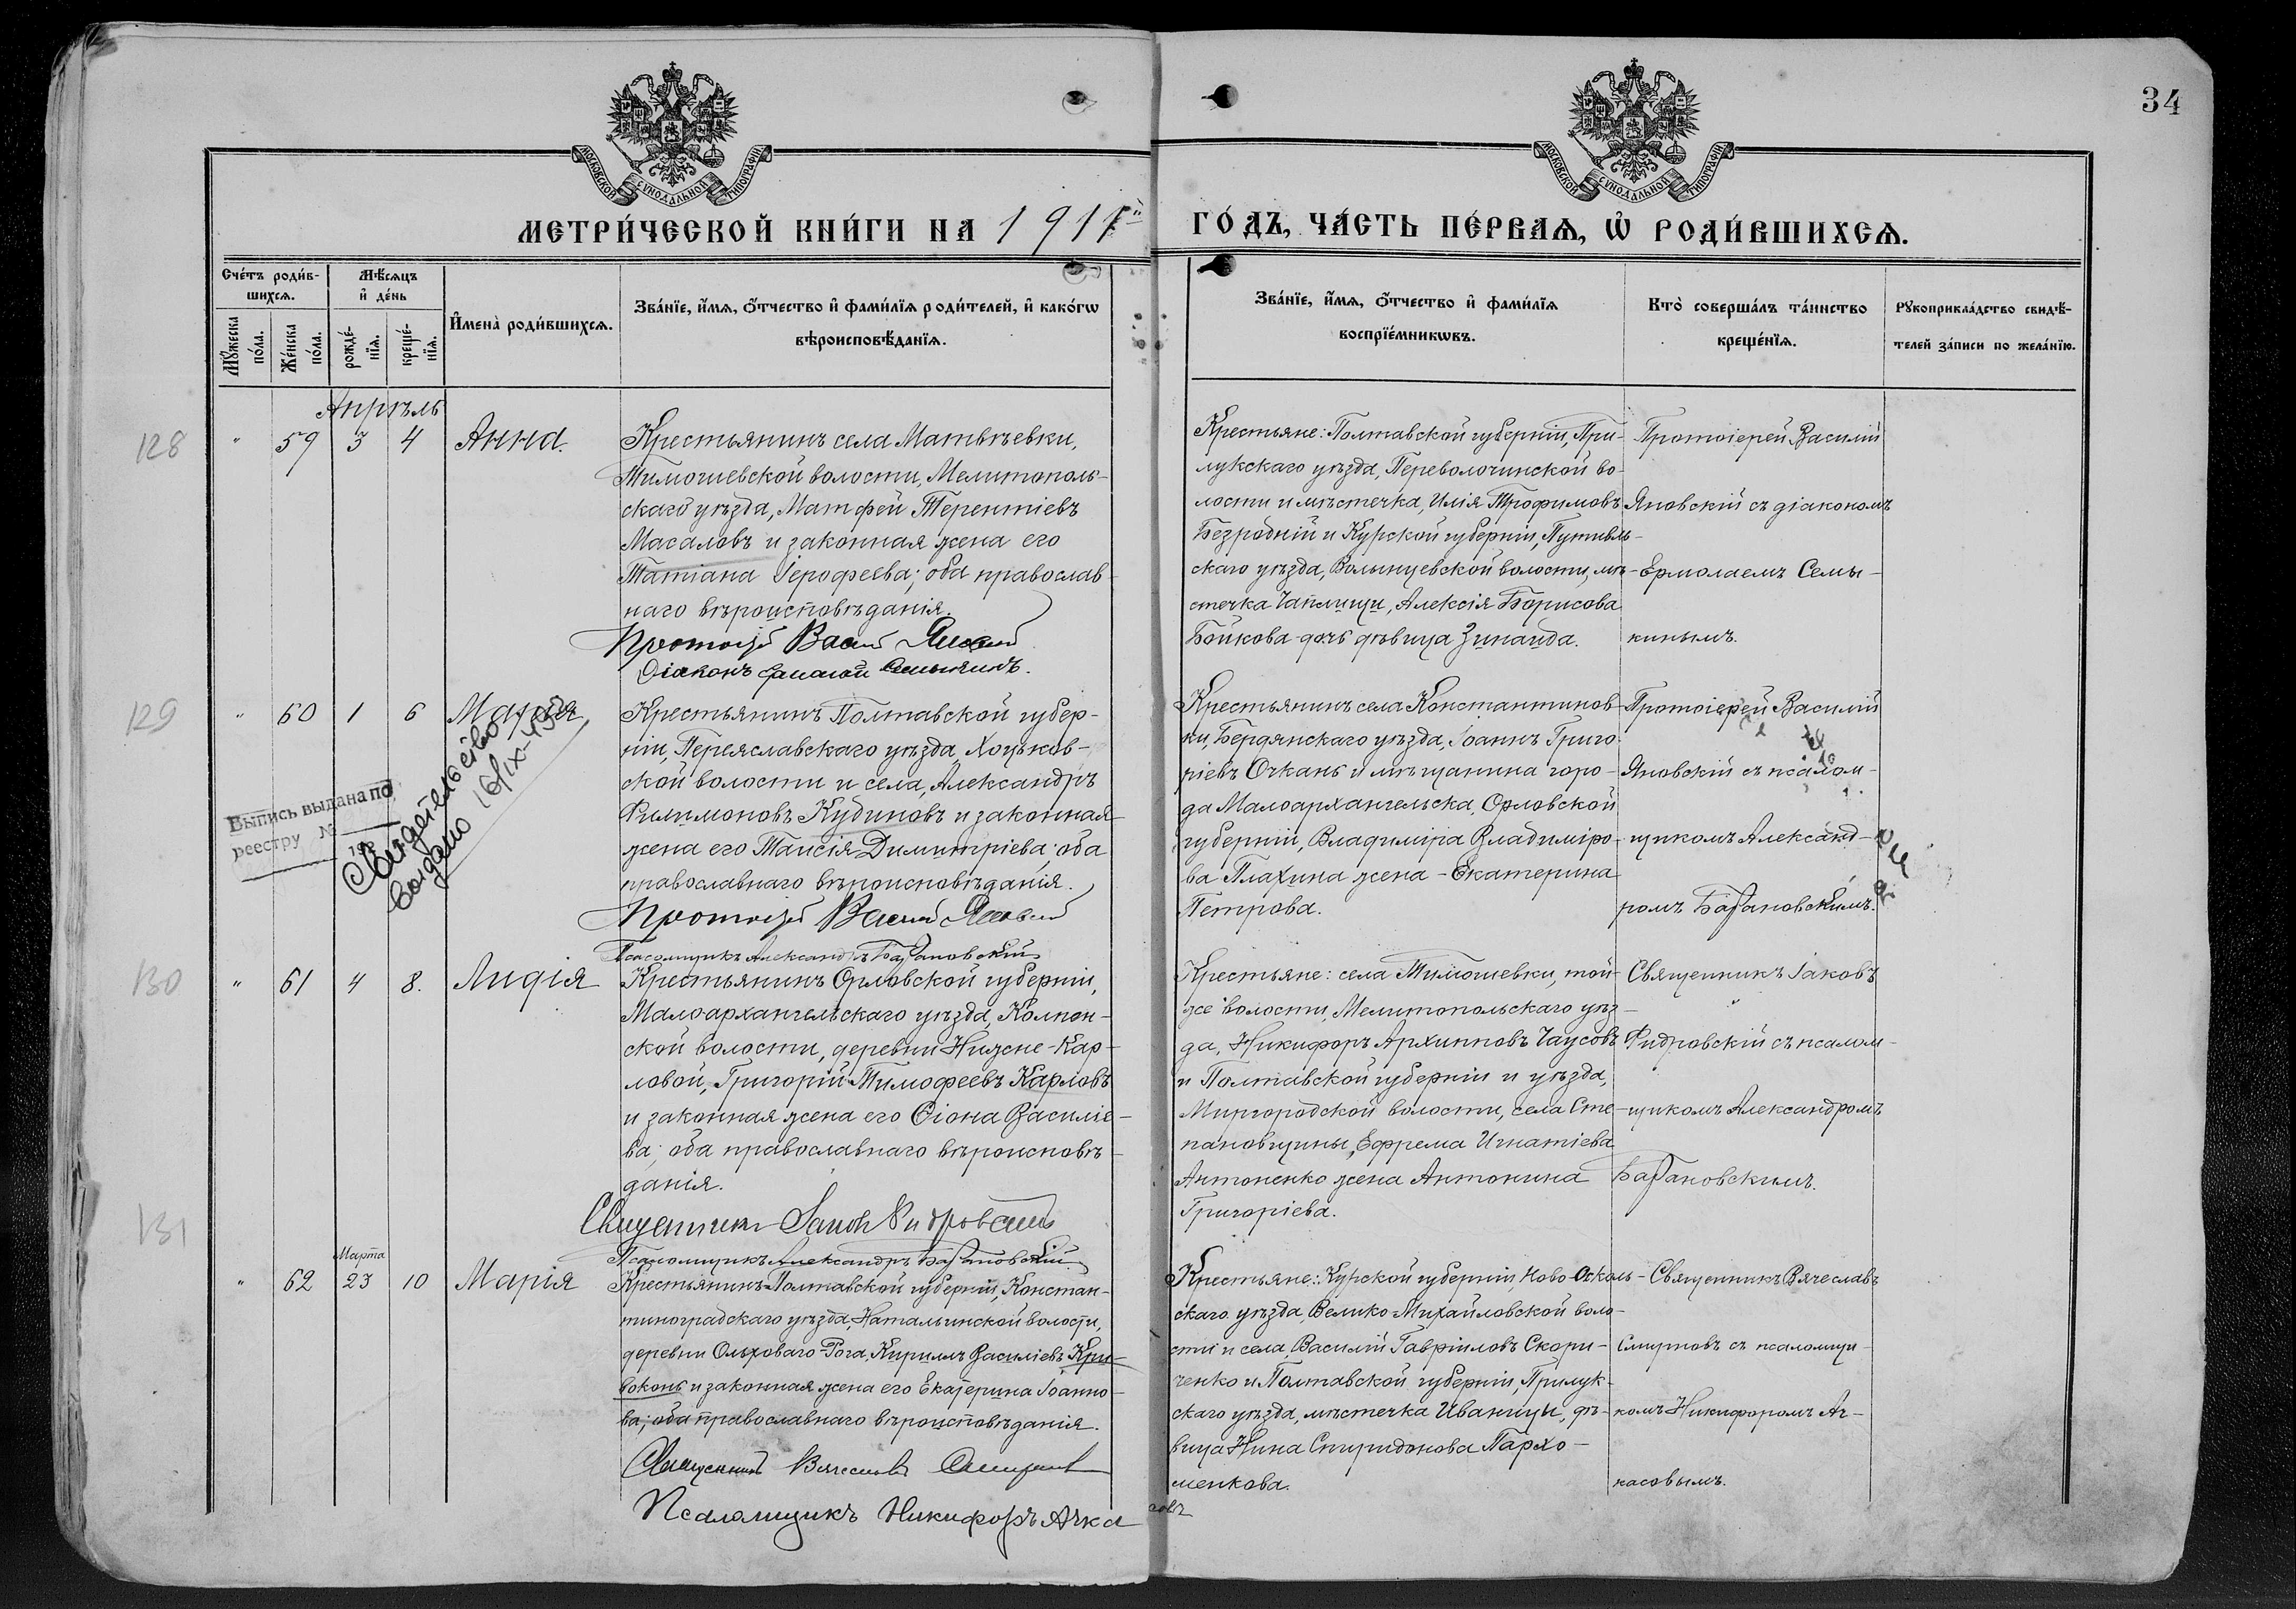 34
МОСКОВСКОЙ СѴНОДАЛЬНОЙ ТИПОГРАФІИ
МОСКОВСКОЙ СѴНОДАЛЬНОЙ ТИПОГРАФІИ
МЕТРИ́ЧЕСКОЙ КНИ́ГИ НА 1911й
ГО́ДЪ, ЧА́СТЬ ПЕ́РВАѦ, Ѽ РОДИ́ВШИХСѦ.
Сче́тъ роди́в-
шихсѧ.
Мѣ́сѧцъ
и҆ де́нь
Мꙋ́жеска по́ла.
Же́нска по́ла.
рожде́-
нїѧ.
креще́-
нїѧ.
И҆мена̀ роди́вшихсѧ.
Зва́нїе, и҆́мѧ, ѻ҆́тчество и҆ фами́лїѧ роди́телей, и҆ како́гѡ
вѣроисповѣ́данїѧ.
Зва́нїе, и҆́мѧ, ѻ҆́тчество и҆ фами́лїѧ
воспрїе́мникѡвъ.
Кто̀ соверша́лъ та́инство
креще́нїѧ.
Рꙋкоприкла́дство свидѣ́-
телей за́писи по жела́нїю.
Апрѣль
128
" 59 3 4 Анна.
Крестьянинъ села Матвѣевки,
Тимошевской волости, Мелитополь-
скаго уѣзда, Матфей Терентіевъ
Масаловъ и законная жена его
Татіана Іерофеева; оба православ-
наго вѣроисповѣданія.
Протоіер Васил Яновскій
Діаконъ Ермолай Семыкинъ.
Крестьяне: Полтавской губерніи, При-
лукскаго уѣзда, Переволочинской во-
лости и мѣстечка, Илія Трофимовъ
Безродній и Курской губерніи, Путивль-
скаго уѣзда, Волынцевской волости, мѣ-
стечка Чаплищи, Алексія Борисова
Бойкова дочь дѣвица Зинаида.
Протоіерей Василій
Яновскій съ діакономъ
Ермолаемъ Семы-
кинымъ.
129
" 60 1 6 Марія
Выпись выдана по
реестру №
19
Свидетельство
выдано 16/IX-
Крестьянинъ Полтавской губер-
ніи, Переяславскаго уѣзда, Хоцьков-
ской волости и села, Александръ
Филимоновъ Кудиновъ и законная
жена его Таисія Димитріева; оба
православнаго вѣроисповѣданія.
Протоіер Василій Яновскій
Псаломщикъ Александръ Баѳановскій
Крестьянинъ села Константинов-
ки, Бердянскаго уѣзда, Іоаннъ Григо-
ріевъ Очкань и мѣщанина горо-
да Малоархангельска, Орловской
губерніи, Владиміра Владиміро-
ва Плахина жена - Екатерина
Петрова.
Протоіерей Василій
Яновскій съ псалом-
щикомъ Александ-
ромъ Баѳановскимъ.
130
" 61 4 8. Лидія
Крестьянинъ Орловской губерніи,
Малоархангельскаго уѣзда, Колпен-
ской волости, деревни Нижне-Кар-
ловой, Григорій Тимофеевъ Карловъ
и законная жена его Ѳіона Василіе-
ва; оба православнаго вѣроисповѣ-
данія.
Священникъ Іаковъ Фидровскій
Псаломщикъ Александръ Баѳановскій
Крестьяне: села Тимошевки, той-
же волости, Мелитопольскаго уѣз-
да, Никифоръ Архипповъ Чаусовъ
и Полтавской губерніи и уѣзда,
Миргородской волости, села Сте-
пановщины, Ефрема Игнатіева
Антоненко жена Антонина
Григоріева.
Священникъ Іаковъ
Фидровскій съ псалом-
щикомъ Александромъ
Баѳановскимъ.
131
Марта
" 62 23 10 Марія
Крестьянинъ Полтавской губерніи, Констан-
тиноградскаго уѣзда, Натальинской волости,
деревни Ольховаго-Рога, Кириллъ Василіевъ Кри-
воконь и законная жена его Екатерина Іоанно-
ва; оба православнаго вѣроисповѣданія.
Священникъ Вячеславъ Смирновъ
Псаломщикъ Никифоръ Ачкасовъ
Крестьяне: Курской губерніи, Ново-Осколь-
скаго уѣзда, Велико-Михайловской воло-
сти и села, Василій Гавріиловъ Скори-
ченко и Полтавской губерніи, Прилук-
скаго уѣзда, мѣстечка Иваницы, дѣ-
вица Нина Спиридонова Пархо-
менкова.
Священникъ Вячеславъ
Смирновъ съ псаломщи-
комъ Никифоромъ Ач-
касовымъ.